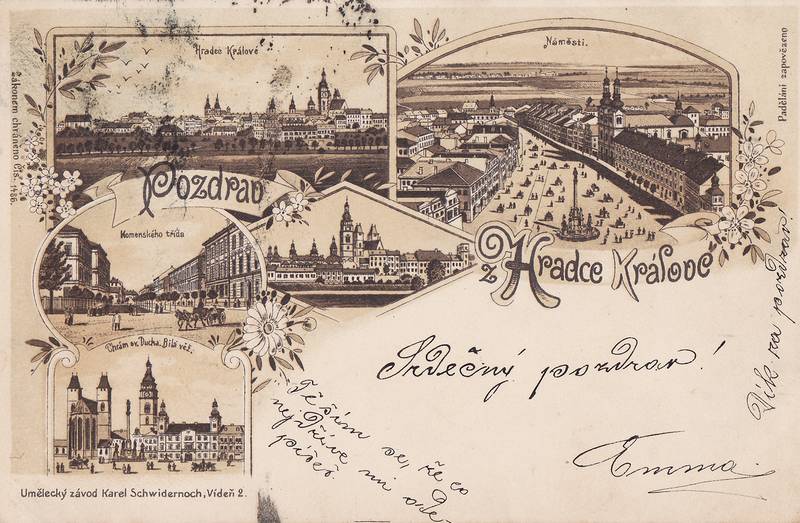 Hradec Králové
Náměstí.
Pozdrav
z Hradce Králové
Komenského třída
Chrám sv. Ducha. Bílá věž.
Umělecký závod Karel Schwidernoch, Vídeň 2.
Zákonem chráněno čís. 1486.
Padělání zapovězeno
Srdečný pozdrav!
Emma.
Těším se, že co
nejdříve mi ode-
píšeš
Dík za pozdrav!